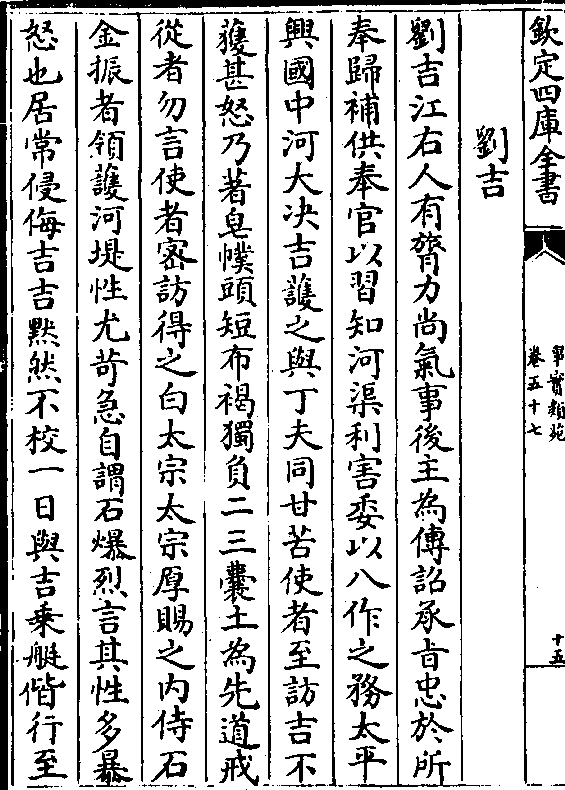 欽定四庫全書
事實類苑
卷五十七
十五
劉吉
劉吉江右人有膂力尚氣事後主為傳詔承㫖忠於所
奉歸補供奉官以習知河渠利害委以八作之務太平
興國中河大决吉護之與丁夫同甘苦使者至訪吉不
獲甚怒乃著皂幞頭短布褐獨負二三囊土為先道戒
從者勿言使者宻訪得之白太宗太宗厚賜之内侍石
金振者領護河堤性尤苛急自謂石爆烈言其性多暴
怒也居常侵侮吉吉黙然不校一日與吉乗艇偕行至